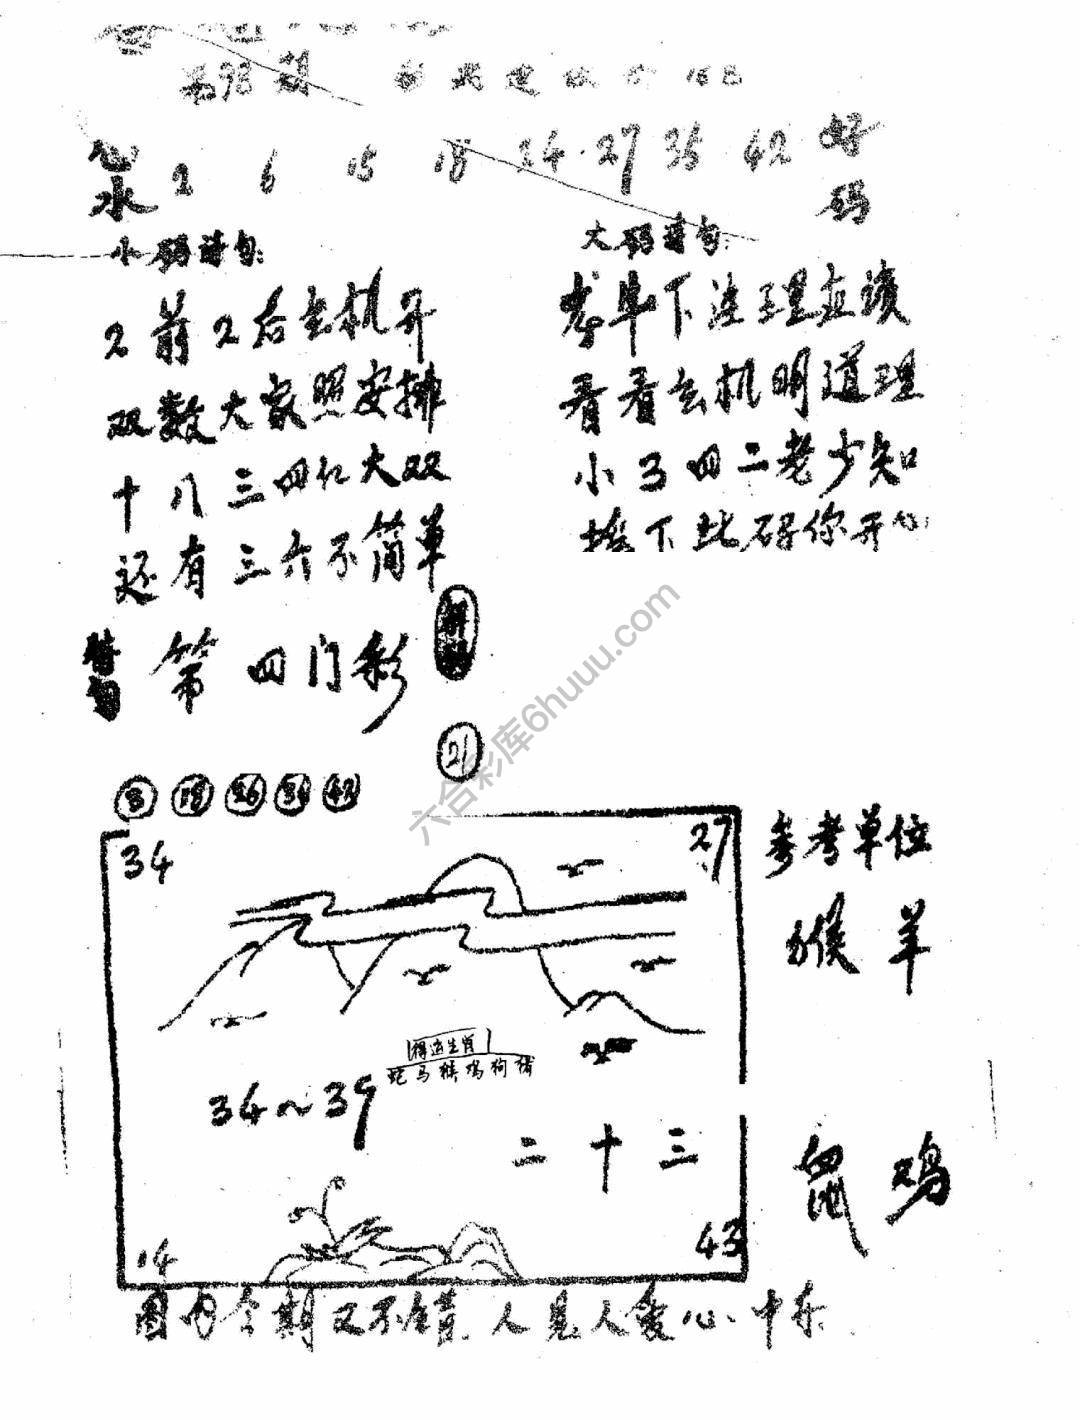 第93期
心水 2 6 15 18 24·27 35 42 好码
小码诗句:
2前2后玄机开
双数大家照安排
十八三四红大双
还有三六不简单
大码诗句:
下注理应读
看看玄机明道理
小3四二老少知
下此码你开心
特句 第四门彩
解码
21
8 18 26 36 42
34 27
参考单位
猴 羊
得道生肖
蛇马猴鸡狗猪
34~39
二十三
鼠 鸡
14 43
图内今期又不错 人见人爱心中乐
六合彩库6huuu.com